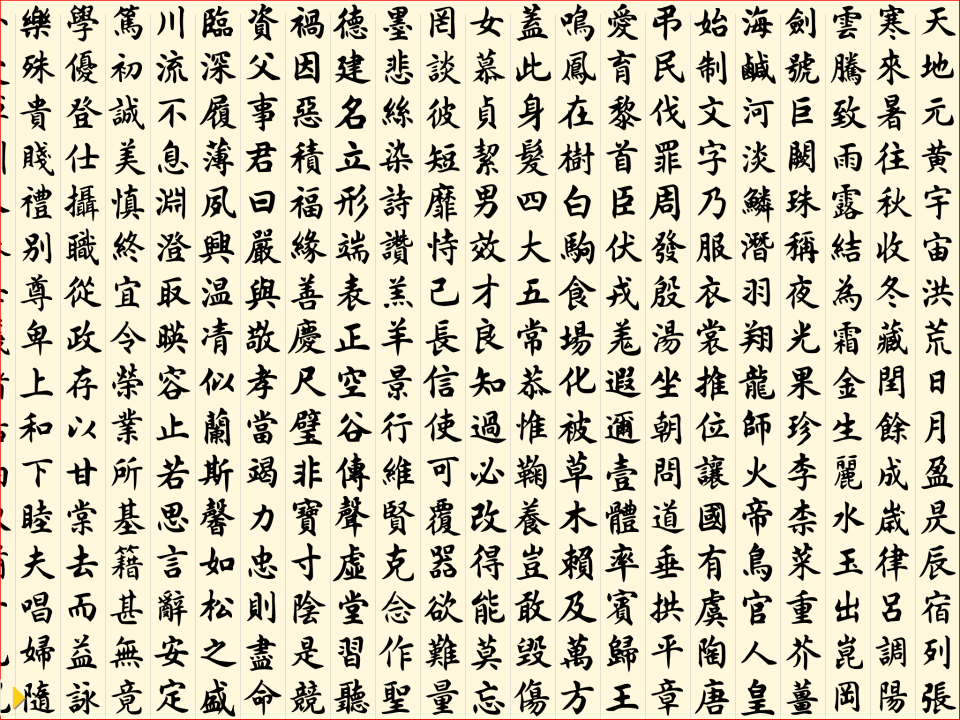 天地元黄宇宙洪荒日月盈昃辰宿列張
寒來暑往秋收冬藏閏餘成歲律呂調陽
雲騰致雨露結為霜金生麗水玉出崑岡
劍號巨闕珠稱夜光果珍李柰菜重芥薑
海鹹河淡鱗潛羽翔龍師火帝鳥官人皇
始制文字乃服衣裳推位讓國有虞陶唐
弔民伐罪周發殷湯坐朝問道垂拱平章
愛育黎首臣伏戎羌遐邇壹體率賓歸王
鳴鳳在樹白駒食場化被草木賴及萬方
蓋此身髮四大五常恭惟鞠養豈敢毀傷
女慕貞絜男效才良知過必改得能莫忘
罔談彼短靡恃己長信使可覆器欲難量
墨悲絲染詩讚羔羊景行維賢克念作聖
德建名立形端表正空谷傳聲虛堂習聽
禍因惡積福緣善慶尺璧非寶寸陰是競
資父事君曰嚴與敬孝當竭力忠則盡命
臨深履薄夙興温凊似蘭斯馨如松之盛
川流不息淵澄取暎容止若思言辭安定
篤初誠美慎終宜令榮業所基籍甚無竟
學優登仕攝職從政存以甘棠去而益詠
樂殊貴賤禮別尊卑上和下睦夫唱婦隨